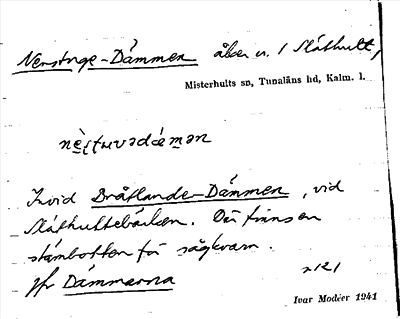 Nerstuge-Dämmen åker n. / Slåthult,
Misterhults sn, Tunaläns hd, Kalm. l.
Invid Bråtlander-Dämmen, vid
Slåthultebäcken. Där finns en
stämbotten för sågkvarn.
Jfr Dämmarna
Ivar Modéer 1941